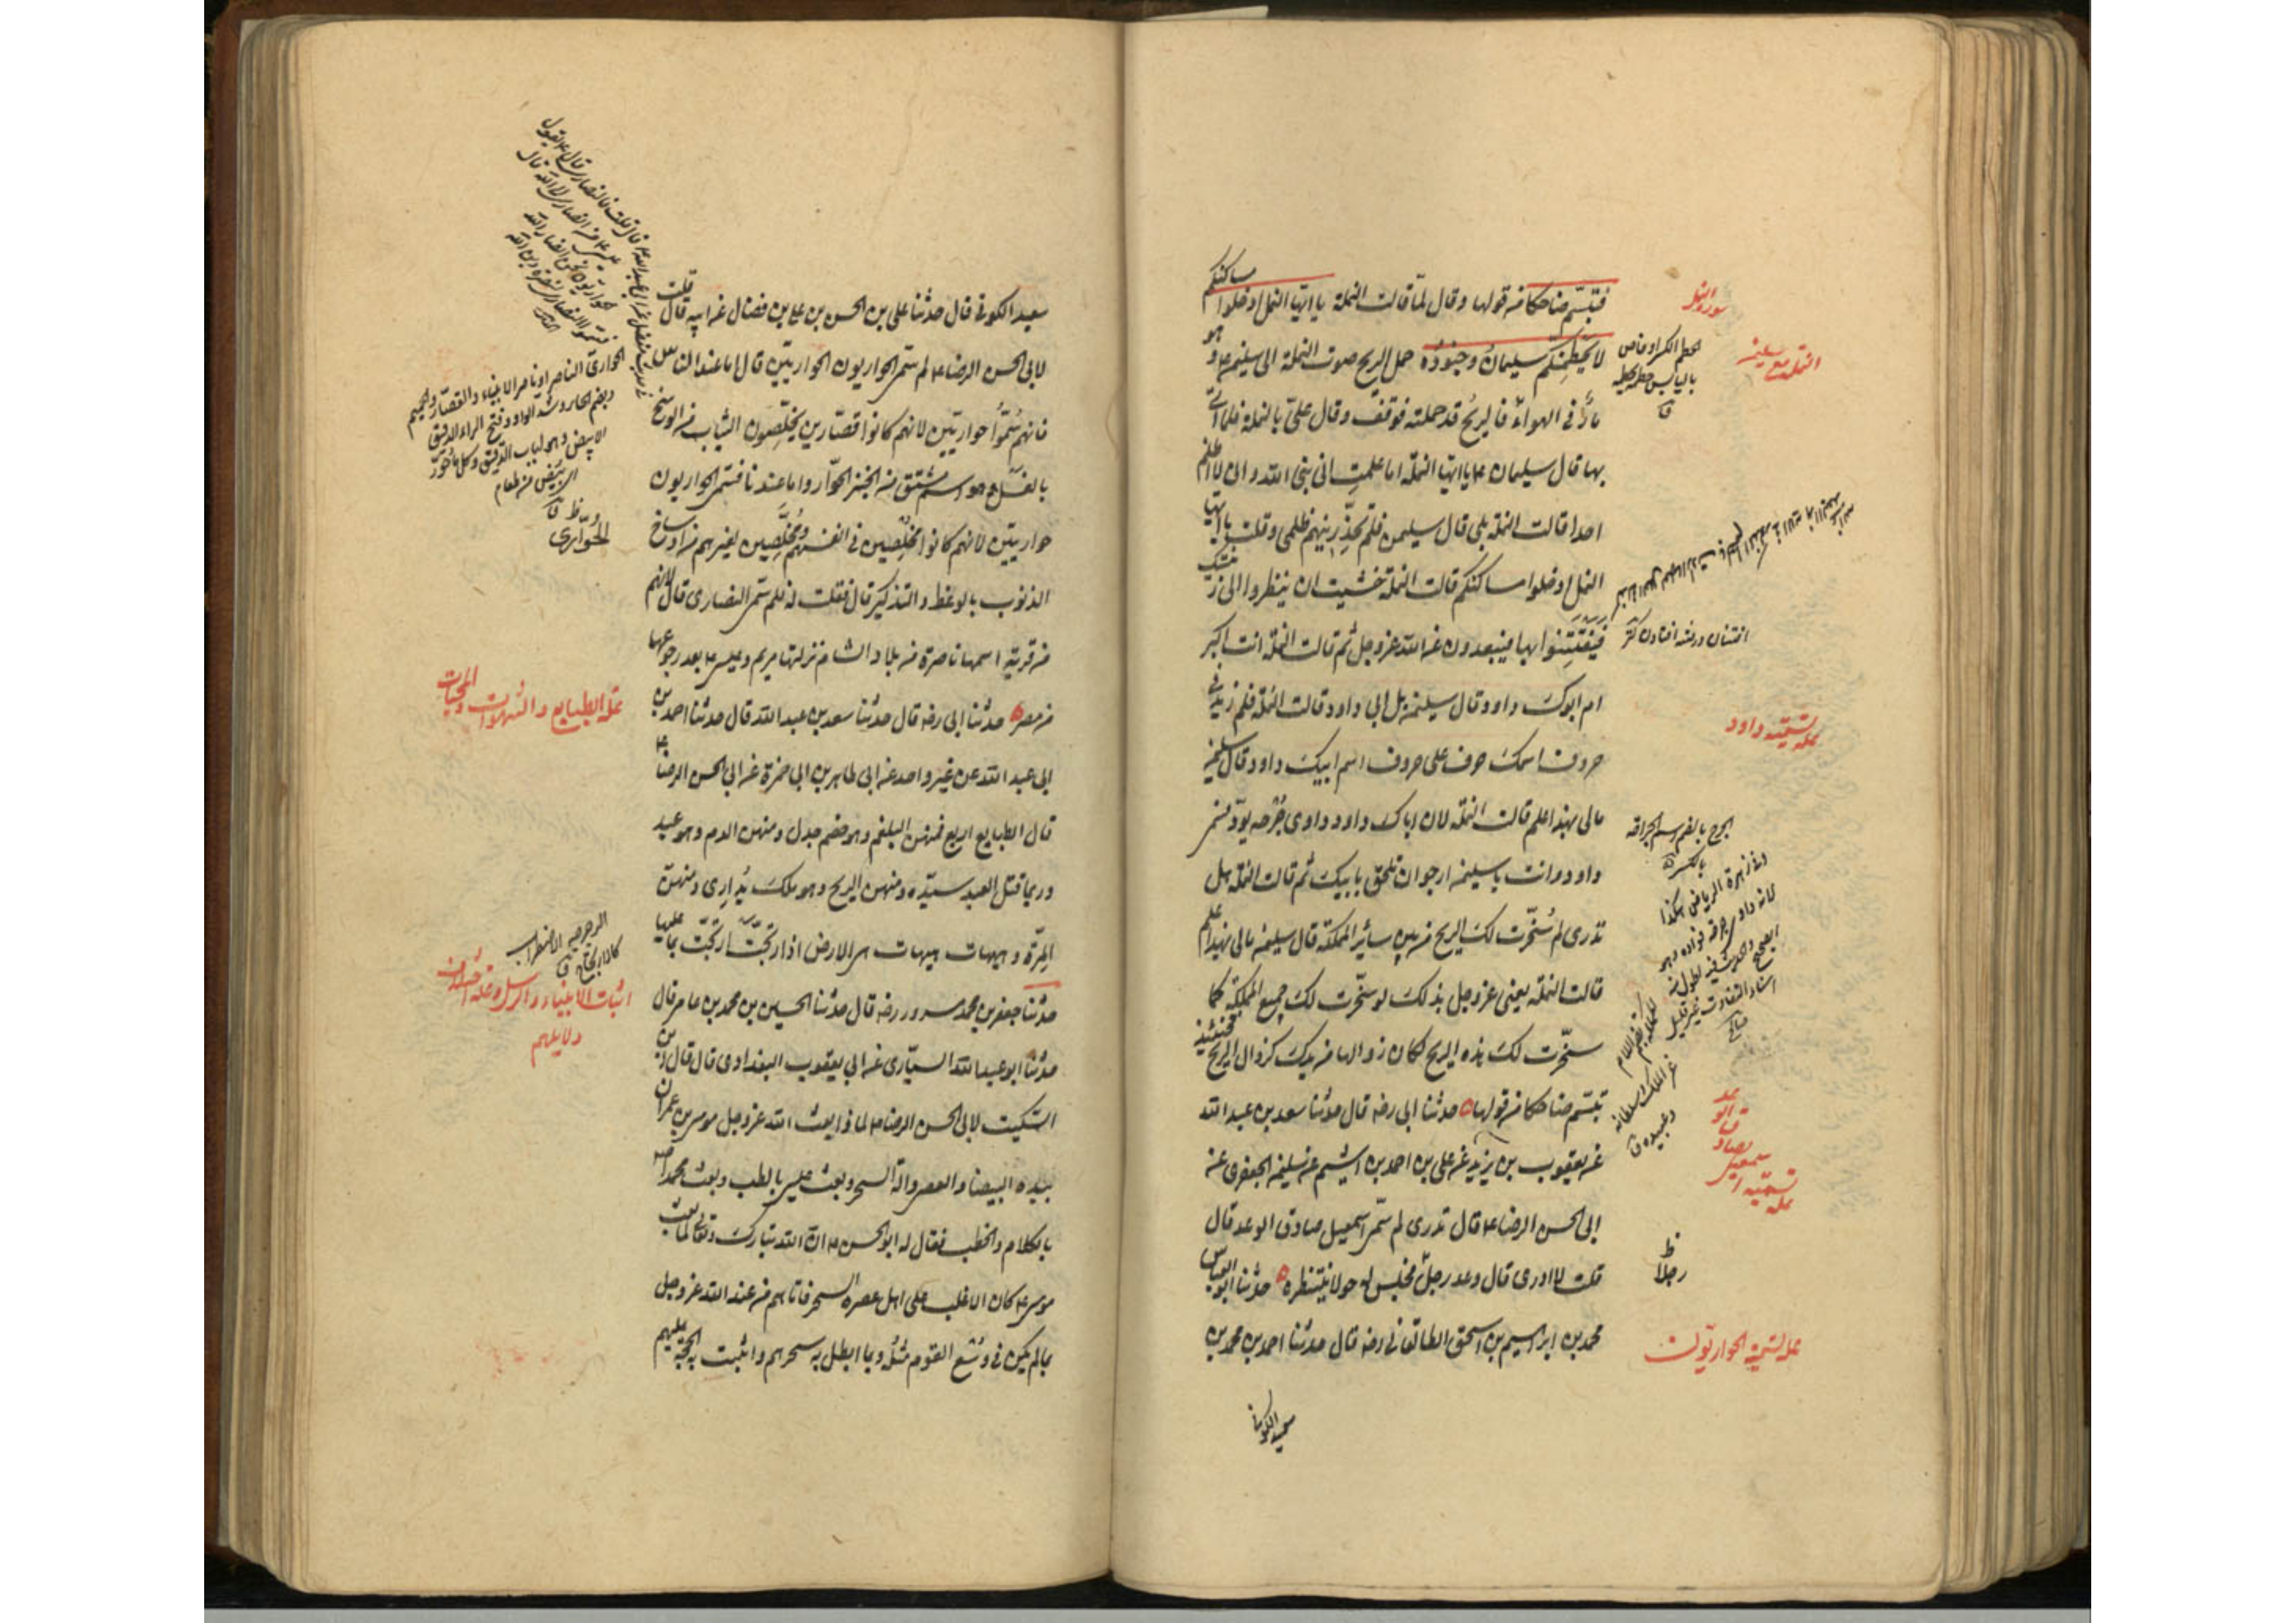 فتبسّم ضاحكا من قولها وقال لمّا قالت النملة يا ايّها النمل ادخلوا مساكنكم
لا يحطمنّكم سليمان وجنوده حمل الريح صوت النملة الى سليمن ع وهو
مارّ في الهواء فالريح قد حملته فوقف وقال علىّ بالنملة فلما اتى
بها قال سليمان ع يا ايتها النملة اما علمت انى نبى الله وانى لا اظلم
احدا قالت النملة بلى قال سليمن فلم تحذّرينهم ظلمى وقلت يا ايها
النمل ادخلوا مساكنكم قالت النملة خشيت ان ينظروا الى زينتك
فيفتتنوا بها فيبعدون عن الله عز وجل ثم قالت النملة انت اكبر
ام ابوك داود قال سليمن بل ابي داود قالت النملة فلم زيد في
حروف اسمك حرف على حروف اسم ابيك داود قال سليمن
مالى بهذا علم قالت النملة لان اباك داود داوى جُرحه بودّ فسمى
داود وانت يا سليمن ارجو ان تلحق بابيك ثم قالت النملة هل
تدرى لم سُخّرت لك الريح من بين سائر المملكة قال سليمن مالى بهذا علم
قالت النملة يعنى عز وجل بذلك لو سخّرت لك جميع المملكة كما
سخّرت لك هذه الريح لكان زوالها من يدك كزوال الريح فحينئذ
تبسّم ضاحكا من قولها حدثنا ابى رضه قال حدثنا سعد بن عبد الله
عن يعقوب بن يزيد عن على بن احمد بن اشيم عن سليمن الجعفرى عن
ابى الحسن الرضا ع قال تدرى لم سمّى اسمعيل صادق الوعد قال
قلت لا ادرى قال وعد رجلٌ فجلس له حولا ينتظره حدثنا ابو العباس
محمد بن ابراهيم بن اسحق الطالقانى رضه قال حدثنا احمد بن محمد بن
سعيد الكوفى
سورة النمل
النملة مع سليمن
افتتان در فتنه افتادن كنز
علة تسمية داود
الجرح بالضم اسم الجراحة
بالكسر
علة تسمية اسمعيل بصادق الوعد
رجلا ظ
علة تسمية الحواريّون
سعيد الكوفى قال حدثنا على بن الحسن بن على بن فضال عن ابيه قال قلت
لابى الحسن الرضا ع لم سمّى الحواريون الحواريّين قال اما عند الناس
فانهم سُمّوا حواريّين لانهم كانوا قصّارين يخلّصون الثياب من الوسخ
بالغسل وهو اسم مشتق من الخبز الحوّار واما عندنا فسمّى الحواريون
حواريّين لانهم كانوا مخلصين في انفسهم ومُخلِّصين لغيرهم من اوساخ
الذنوب بالوعظ والتذكير قال فقلت له فلم سمّى النصارى قال لانهم
من قرية اسمها ناصرة من بلاد الشام نزلتها مريم وعيسى ع بعد رجوعها
من مصر حدثنا ابى رضه قال حدثنا سعد بن عبد الله قال حدثنا احمد بن
ابى عبد الله عن غير واحد عن ابى طاهر بن ابى حمزة عن ابى الحسن الرضا ع
قال الطبايع اربع فمنهنّ البلغم وهو خصم جدل ومنهن الدم وهو عبد
وربما قتل العبد سيّده ومنهن الريح وهو ملك يُدارى ومنهنّ
المِرّة وهيهات هيهات هى الارض اذا ارتجّت ارتجّت بما عليها
حدثنا جعفر بن محمد بن مسرور رضه قال حدثنا الحسين بن محمد بن عامر قال
حدثنا ابو عبد الله السيّارى عن ابى يعقوب البغدادى قال قال ابن
السكيت لابى الحسن الرضا ع لما ذا بعث الله عز وجل موسى بن عمران
بيده البيضا والعصا وآلة السحر وبعث عيسى بالطب وبعث محمدا ص
بالكلام والخطب فقال له ابو الحسن ع ان الله تبارك وتعالى لما بعث
موسى ع كان الاغلب على اهل عصره السحر فاتاهم من عند الله عز وجل
بما لم يكن في وُسْع القوم مثلُه وبما ابطل به سحرهم واثبت به الحجة عليهم
الحوارىّ الناصر او ناصر الانبياء والقصّار والحميم
وبضم الحاء وشد الواو وفتح الراء الدقيق
الابيض وهو لباب الدقيق وكل ما حُوّر
اى بُيّض من طعام
ق
الحُوّارى
علة الطبايع والشهوات والمحبات
الرجرجة الاضطراب
كالارتجاج ق
اثبات الانبياء والرسل وعلة اختلاف
دلايلهم